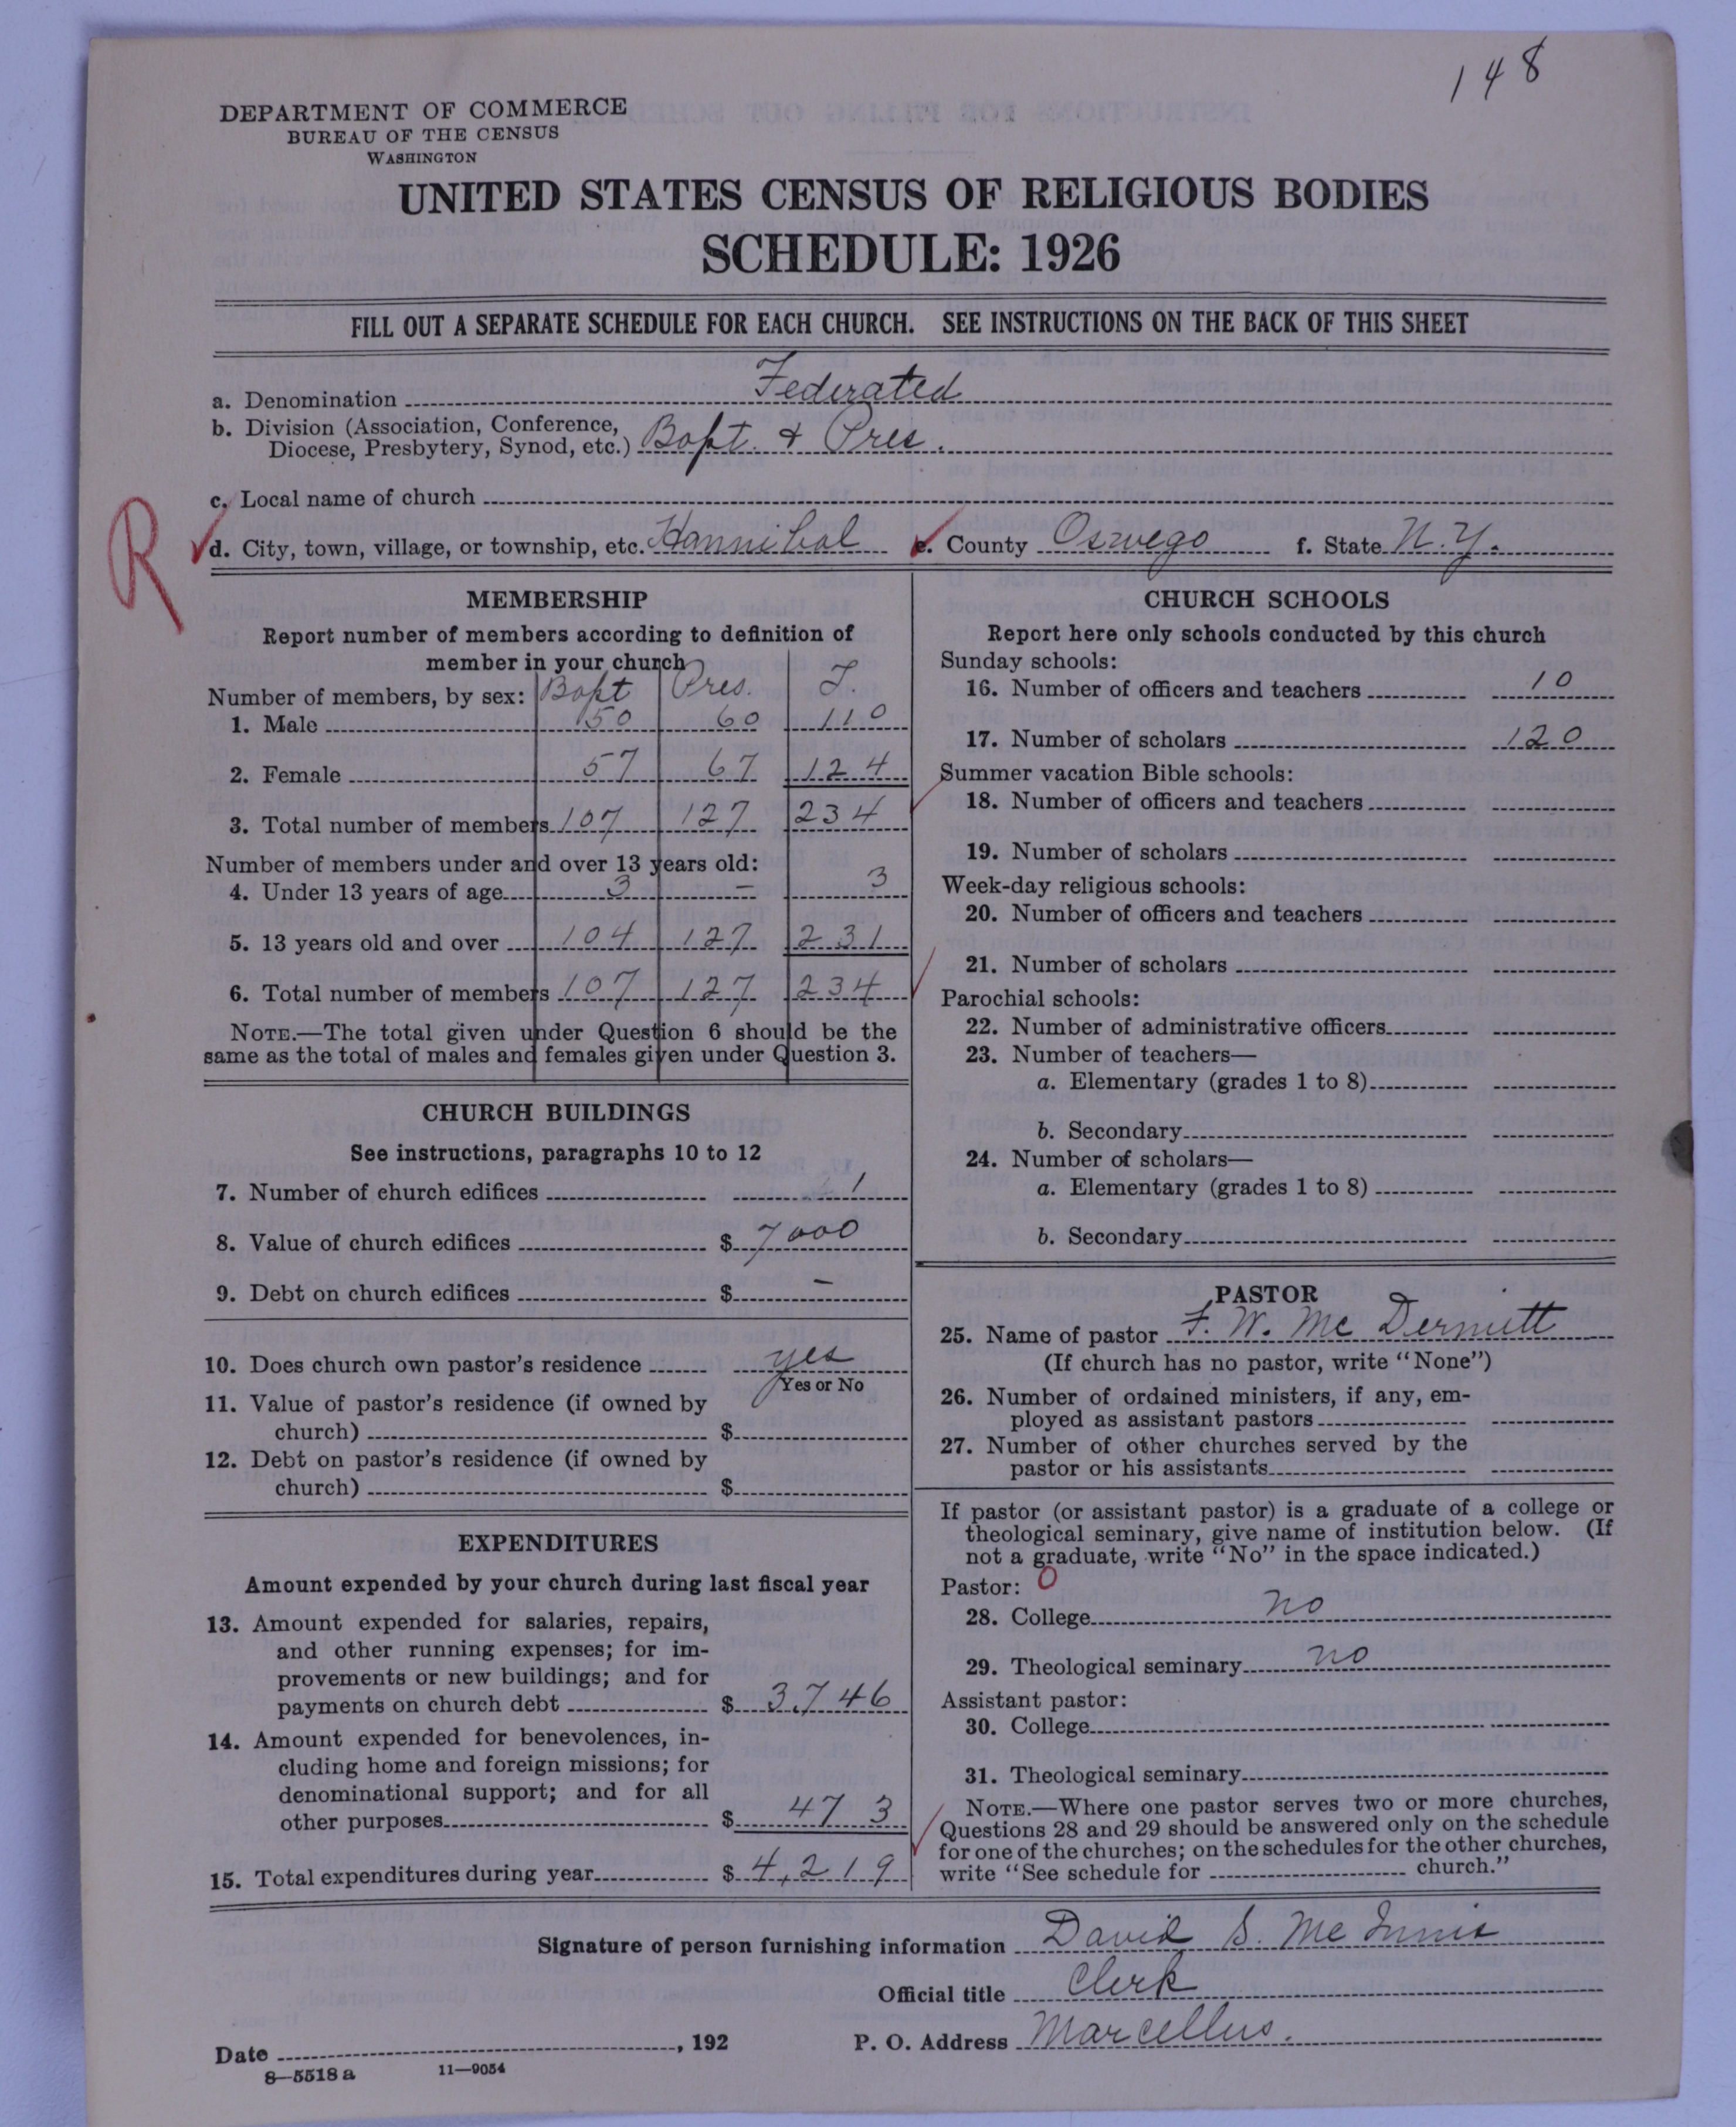 148
DEPARTMENT OF COMMERCE
BUREAU OF THE CENSUS
WASHINGTON
UNITED STATES CENSUS OF RELIGIOUS BODIES
SCHEDULE: 1926
FILL OUT A SEPARATE SCHEDULE FOR EACH CHURCH. SEE INSTRUCTIONS ON THE BACK OF THIS SHEET
a. Denomination Federated
b. Division (Association, Conference,
Diocese, Presbytery, Synod, etc.) Bapt. & Pres.
c. Local name of church
R
d. City, town, village, or township, etc. Hannibal e. County Oswego f. State N.Y.
MEMBERSHIP
Report number of members according to definition of
member in your church
Number of members, by sex: Bapt Pres. T
1. Male 50 60 110
2. Female 57 67 124
3. Total number of members 107 127 234
Number of members under and over 13 years old:
4. Under 13 years of age 3 – 3
5. 13 years old and over 104 127 231
6. Total number of members 107 127 234
NOTE.—The total given under Question 6 should be the
same as the total of males and females given under Question 3.
CHURCH BUILDINGS
See instructions, paragraphs 10 to 12
7. Number of church edifices 1
8. Value of church edifices $ 7000
9. Debt on church edifices $ –
10. Does church own pastor's residence yes
Yes or No
11. Value of pastor's residence (if owned by
church) $
12. Debt on pastor's residence (if owned by
church) $
EXPENDITURES
Amount expended by your church during last fiscal year
13. Amount expended for salaries, repairs,
and other running expenses; for im-
provements or new buildings; and for
payments on church debt $ 3746
14. Amount expended for benevolences, in-
cluding home and foreign missions; for
denominational support; and for all
other purposes $ 473
15. Total expenditures during year $ 4,219
CHURCH SCHOOLS
Report here only schools conducted by this church
Sunday schools:
16. Number of officers and teachers 10
17. Number of scholars 120
Summer vacation Bible schools:
18. Number of officers and teachers
19. Number of scholars
Week-day religious schools:
20. Number of officers and teachers
21. Number of scholars
Parochial schools:
22. Number of administrative officers
23. Number of teachers—
a. Elementary (grades 1 to 8)
b. Secondary
24. Number of scholars—
a. Elementary (grades 1 to 8)
b. Secondary
PASTOR
25. Name of pastor F. W. Mc Dermitt
(If church has no pastor, write "None")
26. Number of ordained ministers, if any, em-
ployed as assistant pastors
27. Number of other churches served by the
pastor or his assistants
If pastor (or assistant pastor) is a graduate of a college or
theological seminary, give name of institution below. (If
not a graduate, write "No" in the space indicated.)
Pastor: 0
28. College no
29. Theological seminary no
Assistant pastor:
30. College
31. Theological seminary
NOTE.—Where one pastor serves two or more churches,
Questions 28 and 29 should be answered only on the schedule
for one of the churches; on the schedules for the other churches,
write "See schedule for church."
Signature of person furnishing information David S. Mc Innis
Official title Clerk
Date , 192 P. O. Address Marcellus.
8—5518 a 11—9054